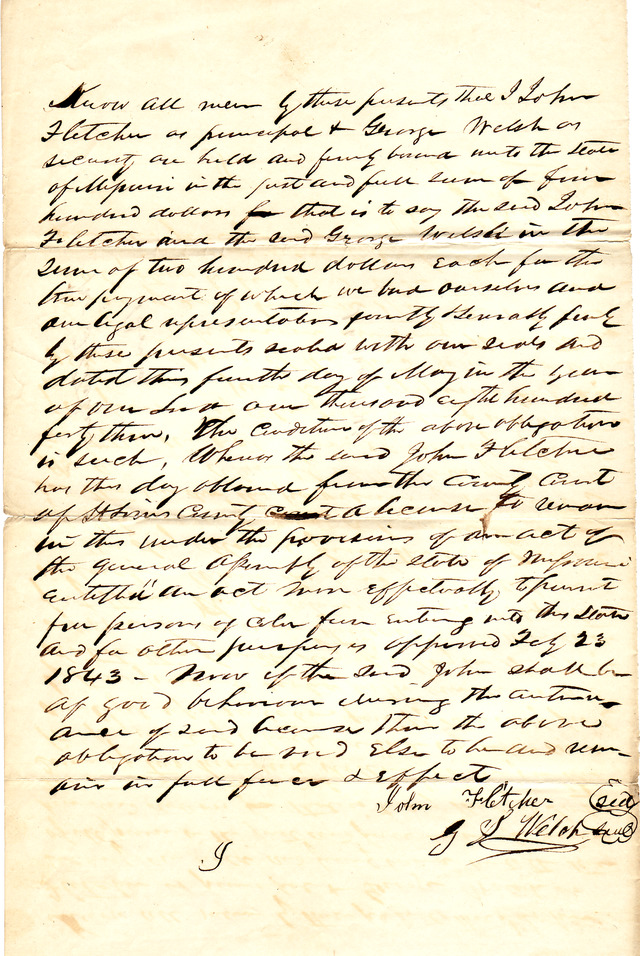 Know all men by these presents that I John
Fletcher as principal & George Welsh as
security are held and firmly bound unto the State
of Missouri in the just and full sum of four
hundred dollars that is to say the said John
Fletcher and the said George Welsh in the
sum of two hundred dollars each for the
true payment of which we bind ourselves and
our legal representatives jointly severally firmly
by these presents sealed with our seals and
dated this fourth day of May in the year
of our Lord one thousand eight hundred
forty three, The condition of the above obligation
is such, Whereas the said John Fletcher
has this day obtained from the County Court
of St Louis County a license to remain
in this under the provisions of an act of
the general assembly of the state of Missouri
entitled "An act more effectually to prevent
free persons of color from entering into this State
and for other purposes approved Feby 23
1843 - Now if the said John shall be
of good behaviour during the continu-
ance of said license then the above
obligation to be void Else to be and rem-
ain in full force & effect
John Fletcher seal
G S Welsh seal